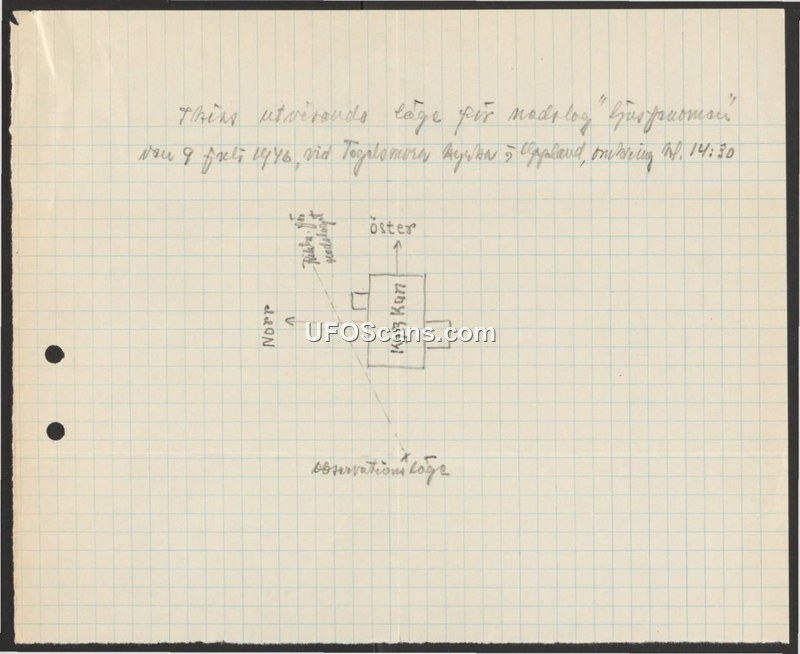 utvisande läge för nedslag "ljusfenomen"
den 9 juli 1946, vid Tegelsmora kyrka i Uppland, omkring kl. 14:30
öster
Norr
KyrKan
UFOScans.com
observationsläge